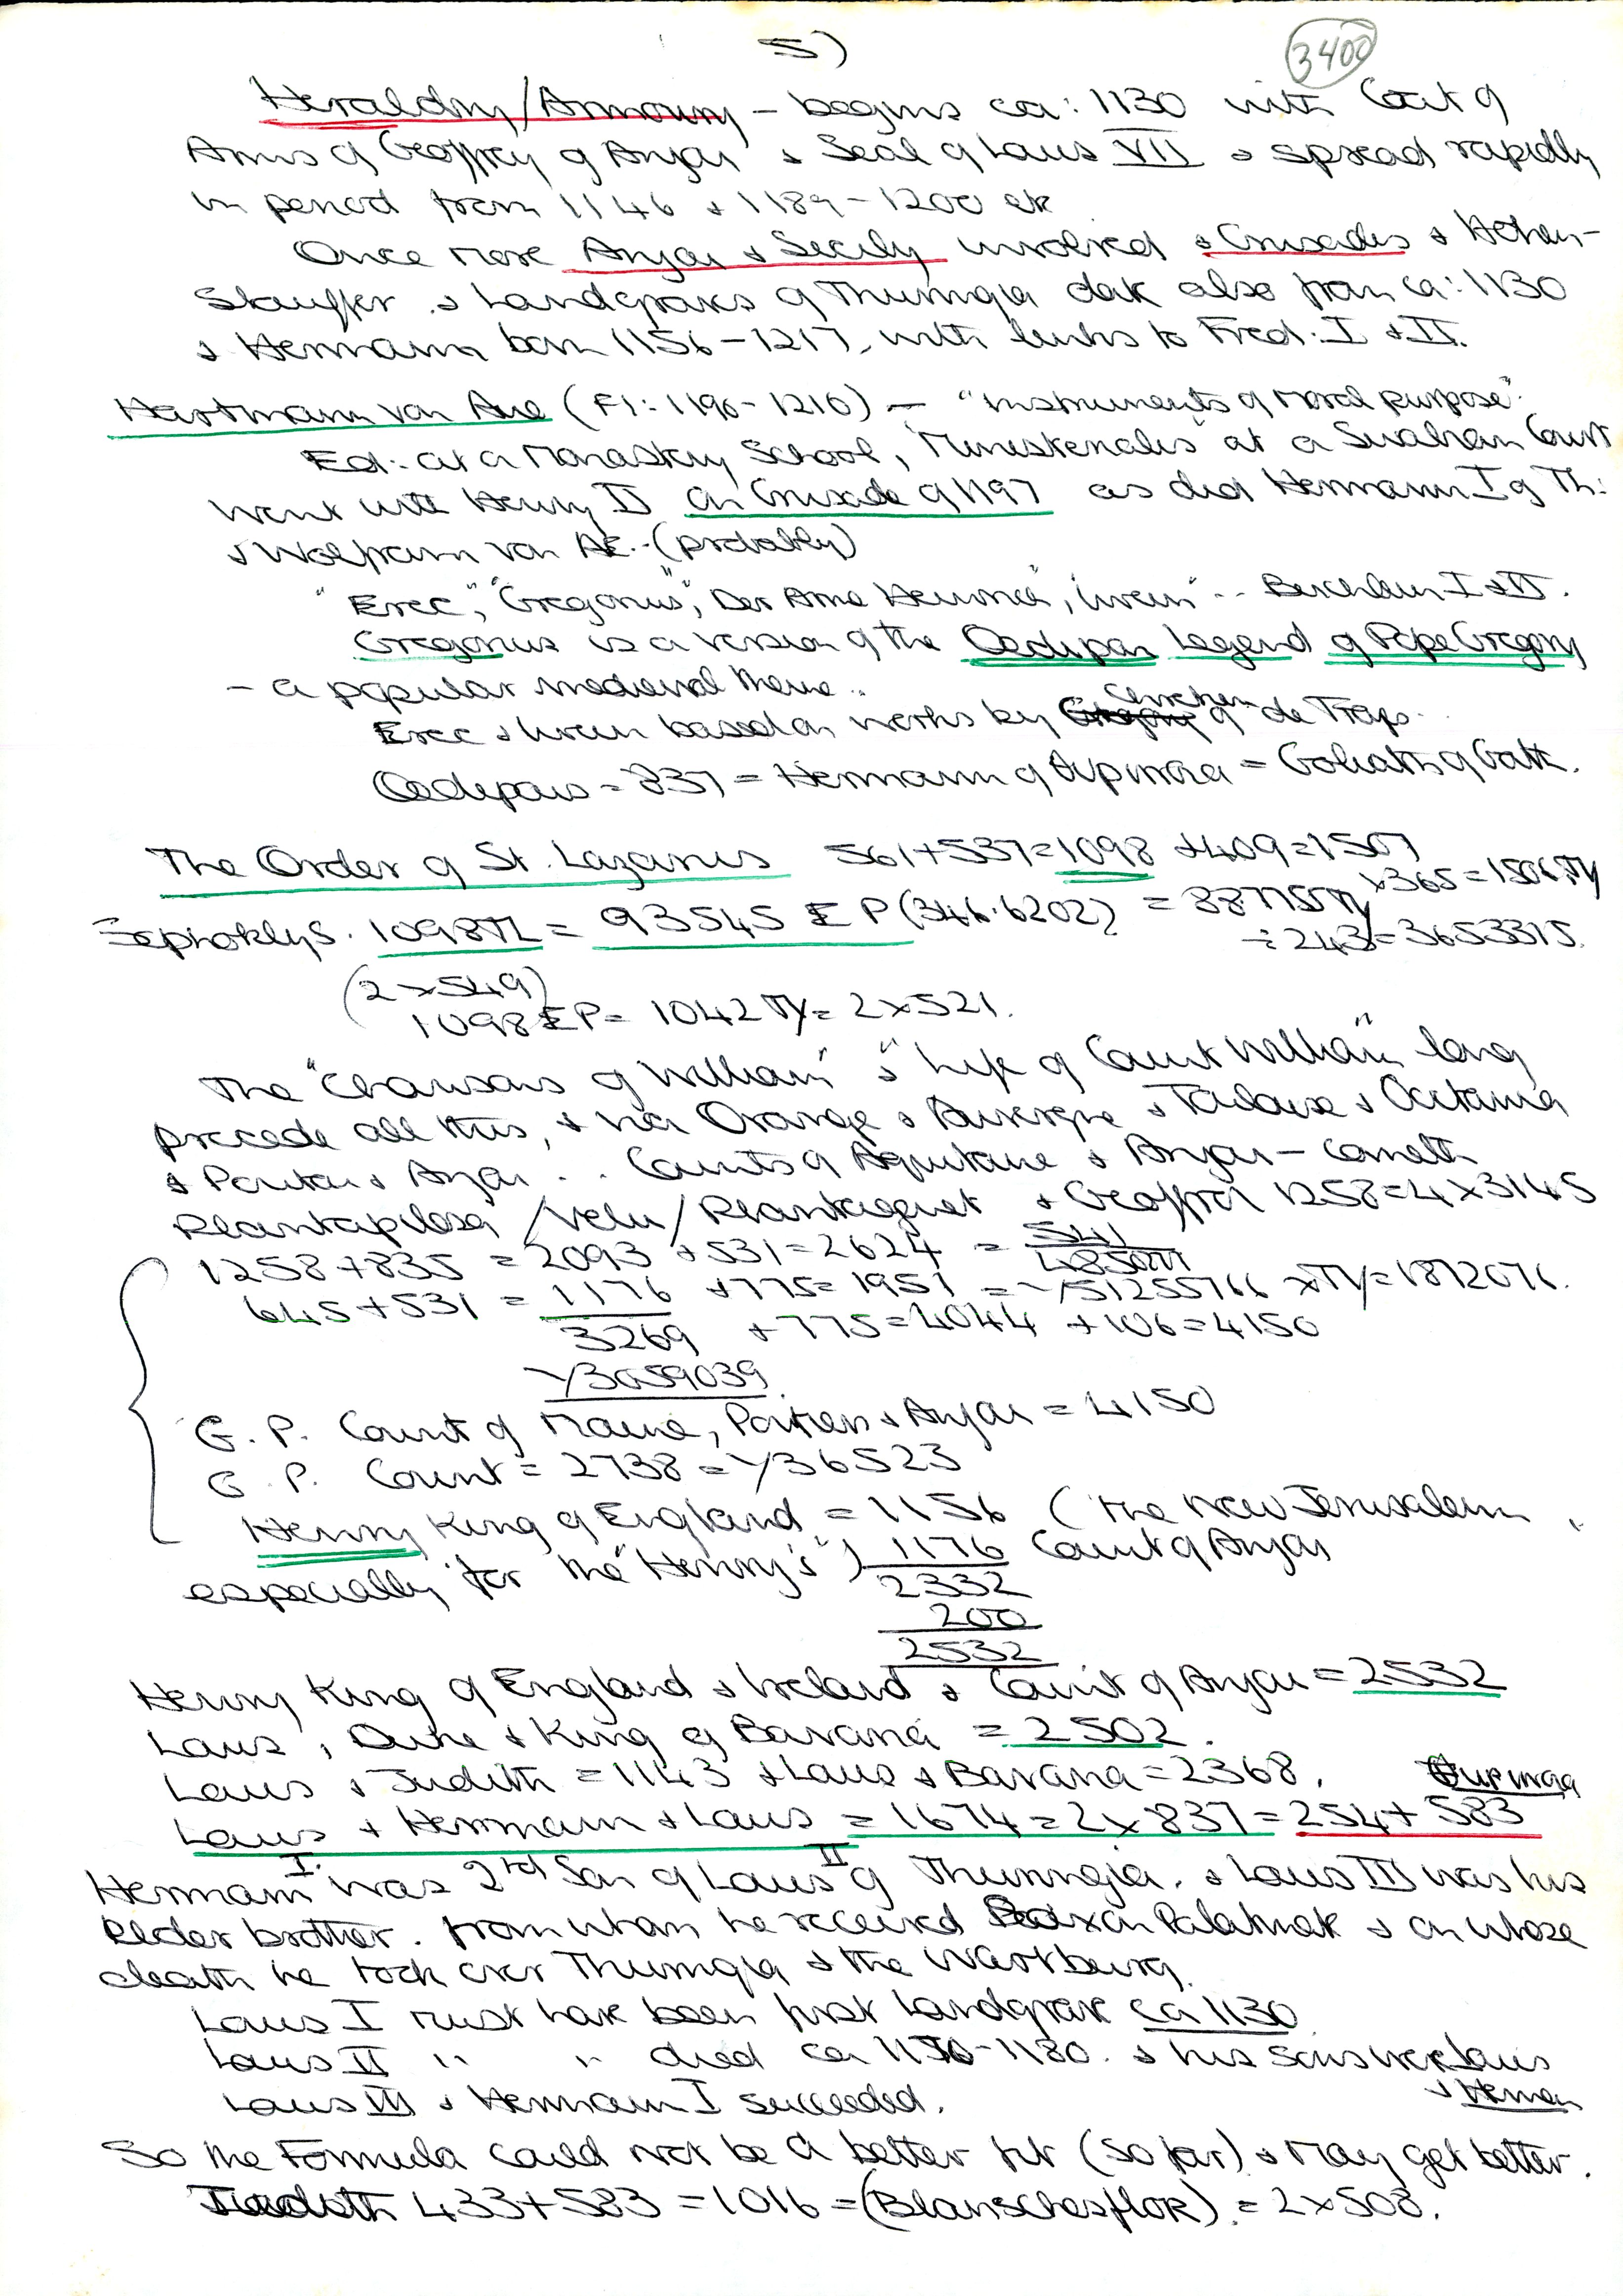 5)
3400
Heraldry/Armoury - begins ca: 1130 with Coat of
Arms of Geoffrey of Anjou & Seal of Louis VII & spread rapidly
in period from 1146 & 1189-1200 etc
Once more Anjou & Secily involved & Crusades & Hohen-
Stauffer. & Landgraves of Thuringia date also from ca: 1130
& Hermann born 1156-1217, with links to Fred: I & II.
Hartmann von Aue (Fl: 1190-1210) - "Instruments of Moral Purpose"
Ed: at a Monastery School, "Ministerialis" at a Swabian Court
Went with Henry on Crusade of 1197 as did Hermann I of Th:
& Wolfram von (probably)
"Erec", "Gregorius", Der Arme Heinrich", Iwein" .. Buchlein I & II.
Gregorius is a version of the Oedipan Legend of Pope Gregory
- a popular medieval theme ..
Erec & Iwein based on works by de Troys.
= 837 = Hermann of = Goliath of Gath.
The Order of St. Lazarus 561+537=1098 +409=1507
x365=
1098TL = 93545 EP (346.6202) =
÷243=3653315.
(2x549)
1098EP= 1042 = 2x521.
The "Chansons of William" & "Life of Count William" long
precede all this, & via Orange & Auvergne & Toulouse & Occitania
& Poitou & Anjou .. Counts of Aquitane & Anjou -
Plantapilosa /Velu/ Plantagenet & Geoffroi 1258=4x3145
1258+835 = 2093 +531=2624 =
645+531 = 1176 +775= 1951 = 51255766 = 1872076.
3269 +775=4044 +106=4150
3059039
G. P. Count of Maine, Poitiers & Anjou = 4150
G. P. Count = 2738 = 36523
Henry King of England = 1156 (The New Jerusalem,
especially for the "Henry's") 1176 Count of Anjou
2332
200
2532
Henry King of England & Ireland & Count of Anjou = 2532
Louis, Duke & King of Bavaria = 2502.
Louis & Judith = 1143 & Louis & Bavaria = 2368.
Louis & Hermann & Louis = 1674 = 2x837 = 254 + 583
Hermann I was 2nd Son of Louis II of Thuringia. & Louis III was his
Elder brother. from whom he received Saxon Palatinate & on whose
death he took over Thuringia & the Wartburg.
Louis I must have been first Landgrave ca 1130
Louis II " " died ca & his sons were Louis
& Herman
Louis III & Hermann I succeeded.
So the Formula could not be a better fit (so far) & may get better.
Judith 433+583 = 1016 = (Blanschesflor) = 2x508.